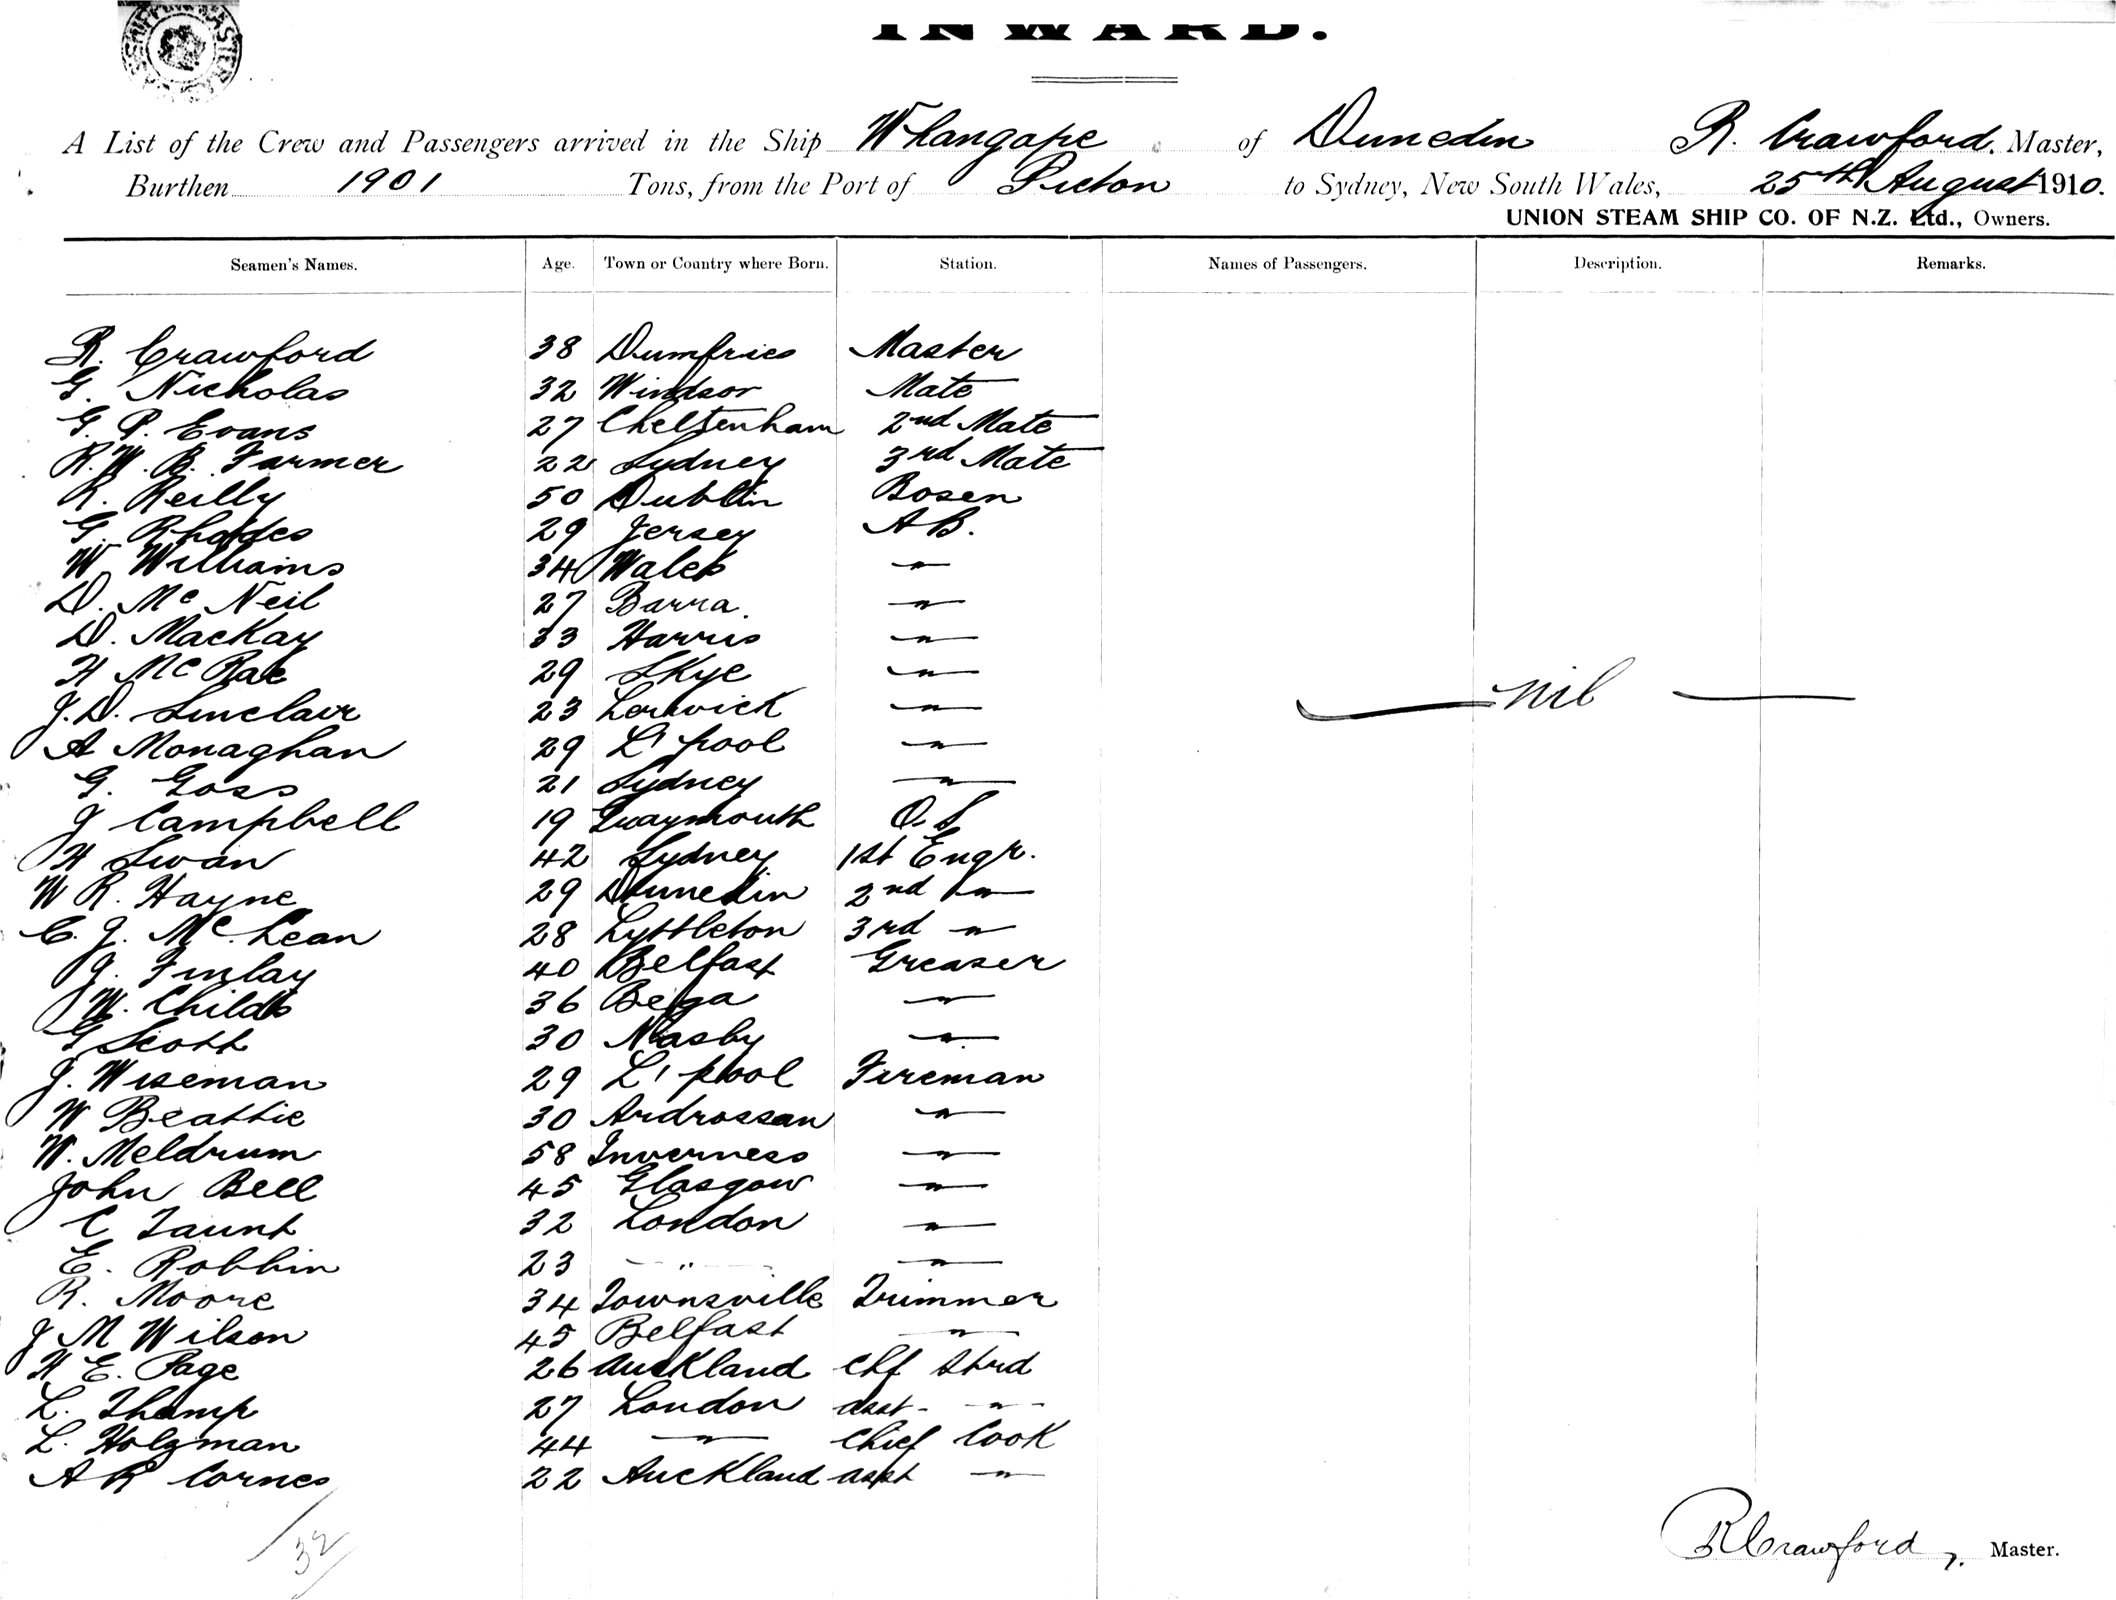 INWARD.
A List of the Crew and Passengers arrived in the Ship Whangape of Dunedin R. Crawford. Master,
Burthen 1901 Tons, from the Port of Picton to Sydney, New South Wales, 25th August 1910.
UNION STEAM SHIP CO. OF N.Z. Ltd., Owners.
Seamen's Names. Age. Town or Country where Born. Station. Names of Passengers. Description. Remarks.
R. Crawford 38 Dumfries Master
G. Nicholas 32 Windsor Mate
G. P. Evans 27 Cheltenham 2nd Mate
R. W. B. Farmer 22 Sydney 3rd Mate
R. Reilly 50 Dublin Bosen
G. Rhodes 29 Jersey AB.
W Williams 34 Wales "
D. McNeil 27 Barra. "
D. MacKay 33 Harris "
H McRae 29 Skye "
J. D. Sinclair 23 Lerwick " — nil —
A Monaghan 29 L'pool "
G. Goss 21 Sydney "
J Campbell 19 Graymouth O.S
H Swan 42 Sydney 1st Engr.
W R. Hayne 29 Dunedin 2nd "
C. J. McLean 28 Lyttleton 3rd "
J. Finlay 40 Belfast Greaser
W. Childs 36 Bega "
G Scott 30 Nasby "
J. Wiseman 29 L'pool Fireman
W Beattie 30 Ardrossan "
W. Meldrum 58 Inverness "
John Bell 45 Glasgow "
C Taunt 32 London "
E. Robbin 23 " "
R. Moore 34 Townsville Trimmer
J M Wilson 45 Belfast "
H E. Page 26 Auckland Chf Strd
L. Thamp 27 London asst - "
L. Holzman 44 " Chief Cook
A R Cornes 22 Auckland asst "
32
R Crawford, Master.